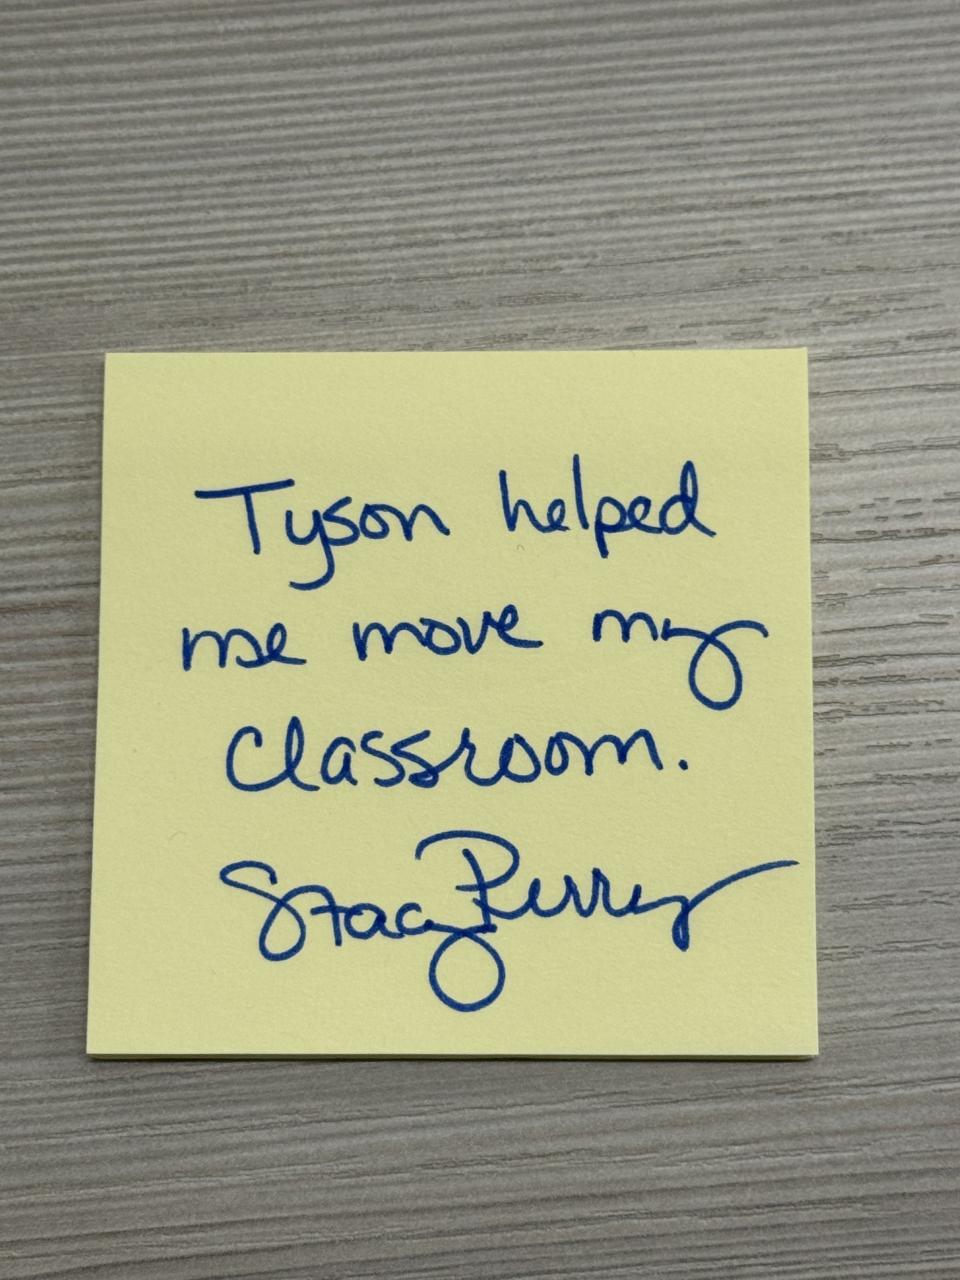 Tyson helped
me move my
classroom.
Stacy Perry